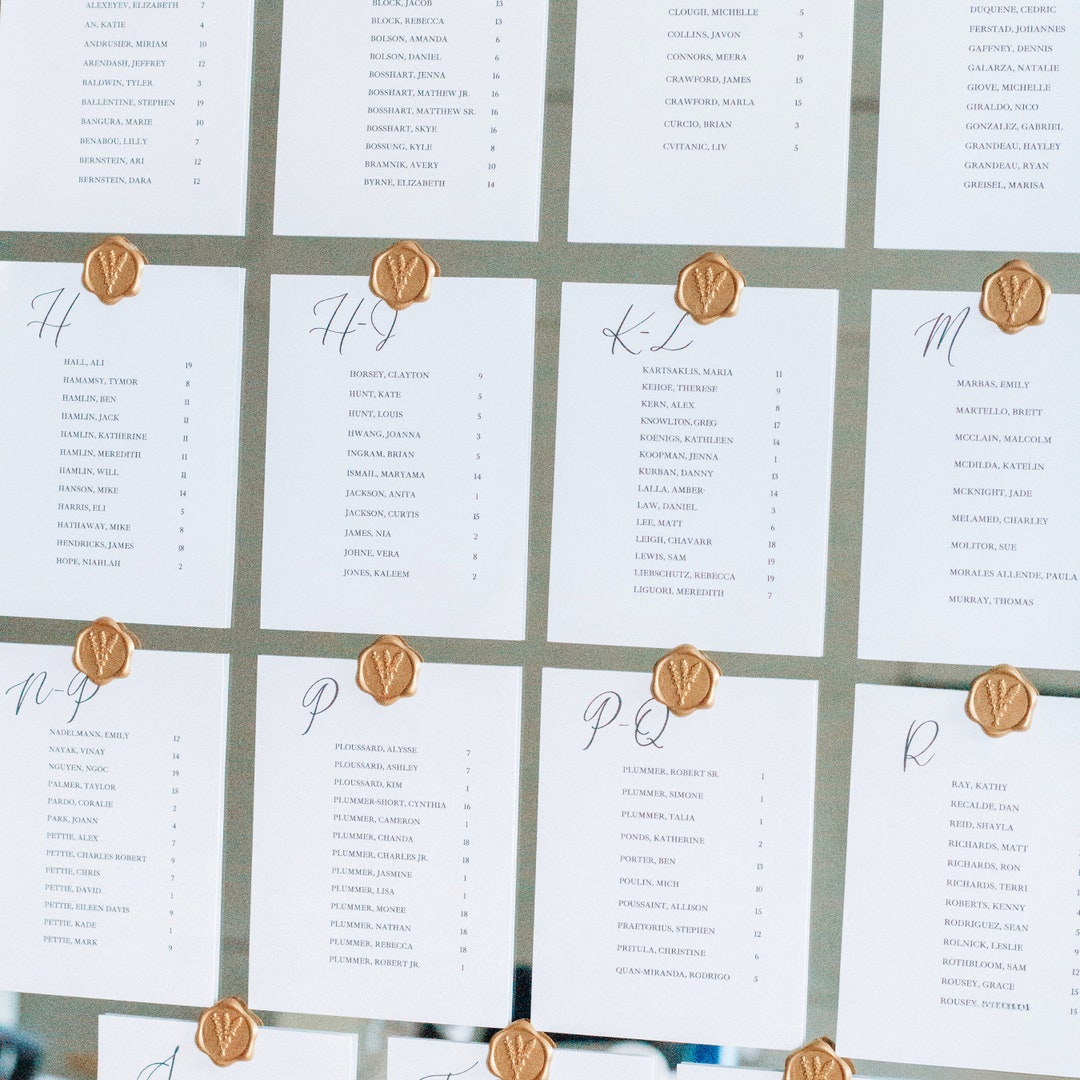 ALEXEYEV, ELIZABETH 7
AN, KATIE 4
ANDRUSIER, MIRIAM 10
ARENDASH, JEFFREY 12
BALDWIN, TYLER 3
BALLENTINE, STEPHEN 19
BANGURA, MARIE 10
BENABOU, LILLY 7
BERNSTEIN, ARI 12
BERNSTEIN, DARA 12
BLOCK, JACOB 13
BLOCK, REBECCA 13
BOLSON, AMANDA 6
BOLSON, DANIEL 6
BOSSHART, JENNA 16
BOSSHART, MATHEW JR. 16
BOSSHART, MATTHEW SR. 16
BOSSHART, SKYE 16
BOSSUNG, KYLE 8
BRAMNIK, AVERY 10
BYRNE, ELIZABETH 14
CLOUGH, MICHELLE 5
COLLINS, JAVON 3
CONNORS, MEERA 19
CRAWFORD, JAMES 15
CRAWFORD, MARLA 15
CURCIO, BRIAN 3
CVITANIC, LIV 5
DUQUENE, CEDRIC
FERSTAD, JOHANNES
GAFFNEY, DENNIS
GALARZA, NATALIE
GIOVE, MICHELLE
GIRALDO, NICO
GONZALEZ, GABRIEL
GRANDEAU, HAYLEY
GRANDEAU, RYAN
GREISEL, MARISA
H
HALL, ALI 19
HAMAMSY, TYMOR 8
HAMLIN, BEN 11
HAMLIN, JACK 11
HAMLIN, KATHERINE 11
HAMLIN, MEREDITH 11
HAMLIN, WILL 11
HANSON, MIKE 14
HARRIS, ELI 5
HATHAWAY, MIKE 8
HENDRICKS, JAMES 18
HOPE, NIAHLAH 2
H-J
HORSEY, CLAYTON 9
HUNT, KATE 5
HUNT, LOUIS 5
HWANG, JOANNA 3
INGRAM, BRIAN 5
ISMAIL, MARYAMA 14
JACKSON, ANITA 1
JACKSON, CURTIS 15
JAMES, NIA 2
JOHNE, VERA 8
JONES, KALEEM 2
K-L
KARTSAKLIS, MARIA 11
KEHOE, THERESE 9
KERN, ALEX 8
KNOWLTON, GREG 17
KOENIGS, KATHLEEN 14
KOOPMAN, JENNA 1
KURBAN, DANNY 13
LALLA, AMBER 14
LAW, DANIEL 3
LEE, MATT 6
LEIGH, CHAVARR 18
LEWIS, SAM 19
LIEBSCHUTZ, REBECCA 19
LIGUORI, MEREDITH 7
M
MARBAS, EMILY
MARTELLO, BRETT
MCCLAIN, MALCOLM
MCDILDA, KATELIN
MCKNIGHT, JADE
MELAMED, CHARLEY
MOLITOR, SUE
MORALES ALLENDE, PAULA
MURRAY, THOMAS
N-P
NADELMANN, EMILY 12
NAYAK, VINAY 14
NGUYEN, NGOC 19
PALMER, TAYLOR 15
PARDO, CORALIE 2
PARK, JOANN 4
PETTIE, ALEX 7
PETTIE, CHARLES ROBERT 9
PETTIE, CHRIS 7
PETTIE, DAVID 1
PETTIE, EILEEN DAVIS 9
PETTIE, KADE 1
PETTIE, MARK 9
P
PLOUSSARD, ALYSSE 7
PLOUSSARD, ASHLEY 7
PLOUSSARD, KIM 1
PLUMMER-SHORT, CYNTHIA 16
PLUMMER, CAMERON 1
PLUMMER, CHANDA 18
PLUMMER, CHARLES JR. 18
PLUMMER, JASMINE 1
PLUMMER, LISA 1
PLUMMER, MONEE 18
PLUMMER, NATHAN 18
PLUMMER, REBECCA 18
PLUMMER, ROBERT JR. 1
P-Q
PLUMMER, ROBERT SR. 1
PLUMMER, SIMONE 1
PLUMMER, TALIA 1
PONDS, KATHERINE 2
PORTER, BEN 13
POULIN, MICH 10
POUSSAINT, ALLISON 15
PRAETORIUS, STEPHEN 12
PRITULA, CHRISTINE 6
QUAN-MIRANDA, RODRIGO 5
R
RAY, KATHY
RECALDE, DAN
REID, SHAYLA
RICHARDS, MATT
RICHARDS, RON
RICHARDS, TERRI
ROBERTS, KENNY
RODRIGUEZ, SEAN
ROLNICK, LESLIE 9
ROTHBLOOM, SAM 12
ROUSEY, GRACE 15
ROUSEY, 15